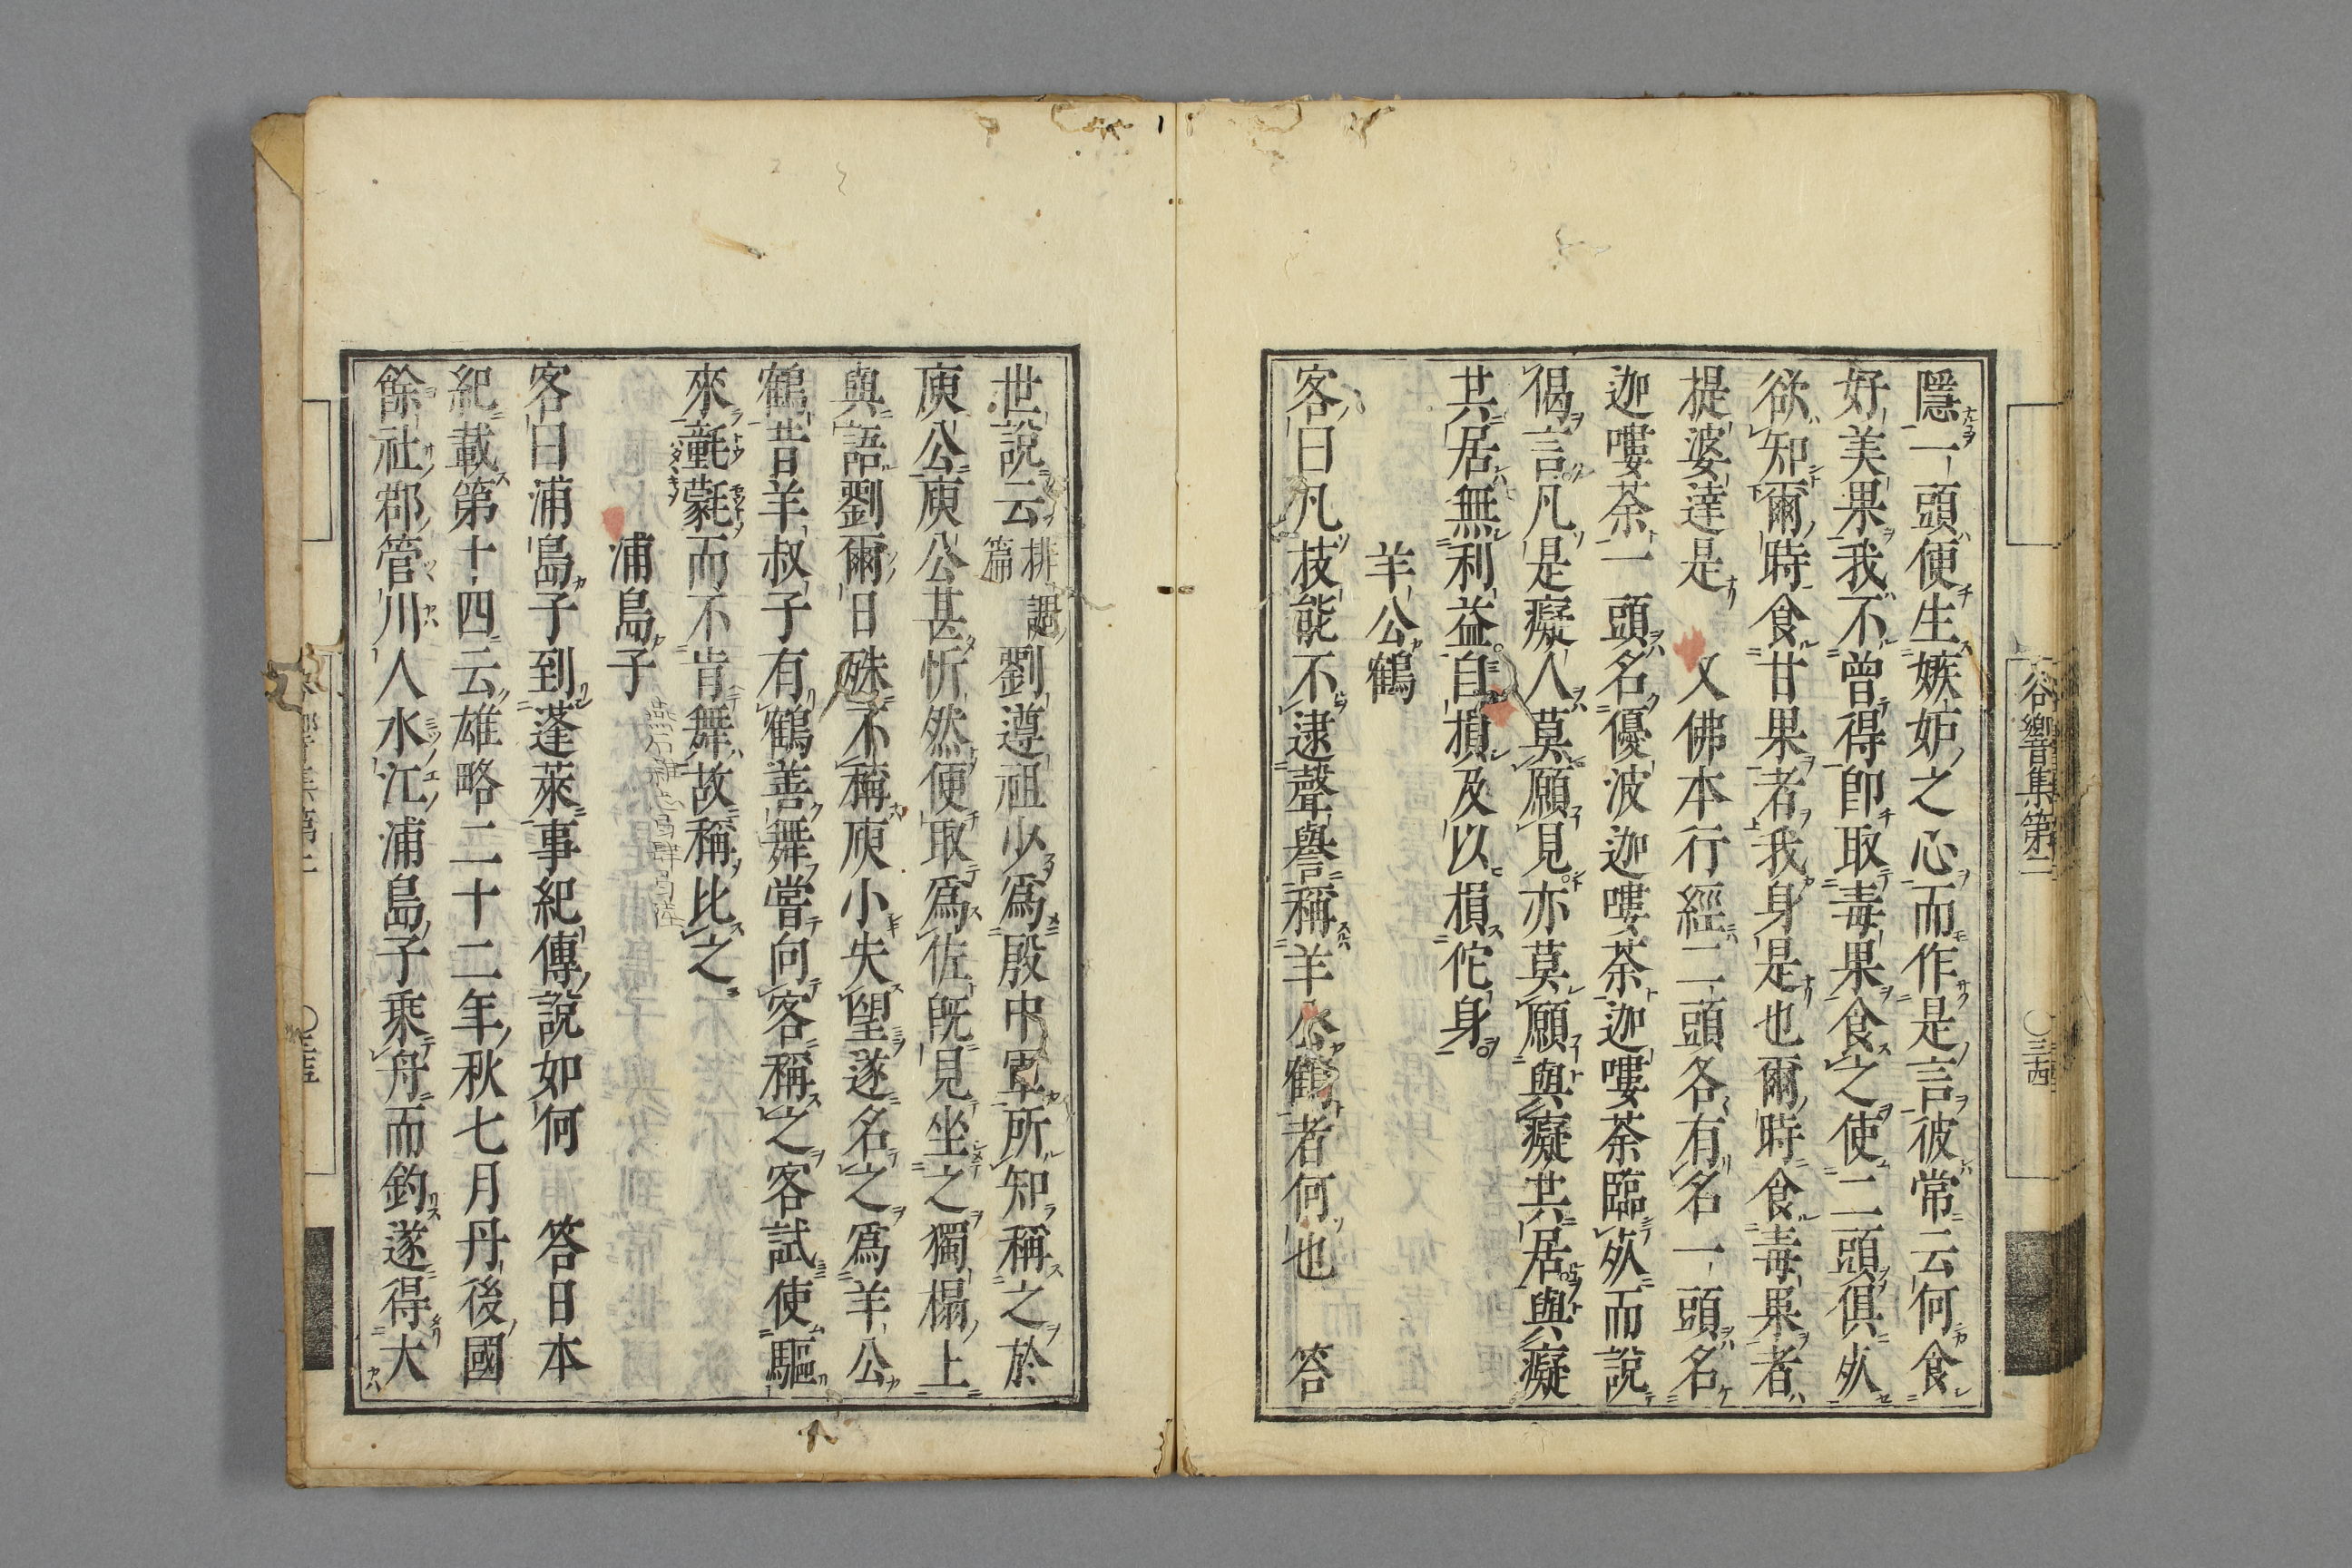 隱一頭便生嫉妬之心而作是言彼常云何食
好美果我不曾得卽取毒果食之使二頭俱㱔
欲知爾時食甘果者我身是也爾時食毒果者
提婆達是　又佛本行經二頭各有名一頭名
迦嘍荼一頭名優波迦嘍荼迦嘍荼臨㱔而說
偈言凡是癡人莫願見亦莫願與癡共居與癡
共居無利益自損及以損佗身
羊公鶴
客曰凡技能不逮聲譽稱羊公鶴者何也　答
世說云排調篇劉遵祖少爲殷中軍所知稱之於
庾公庾公甚忻然便取爲佐旣見坐之獨榻上
與語劉爾日殊不稱庾小失望遂名之爲羊公
鶴昔羊叔子有鶴善舞嘗向客稱之客試使驅
來氃氋而不肯舞故稱比之
浦島子
客曰浦島子到蓬萊事紀傳說如何　答日本
紀載第十四云雄略二十二年秋七月丹後國
餘社郡管川人水江浦島子乘舟而釣遂得大
谷響集第二
〇三四